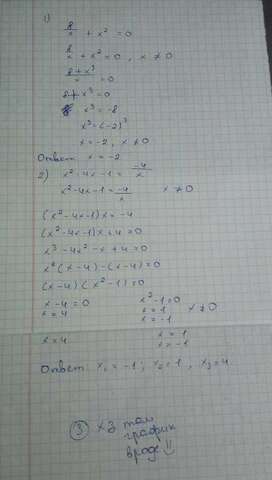 1)
8/x + x² = 0
8/x + x² = 0, x ≠ 0
8+x³/x = 0
8+x³=0
x³=-8
x³=(-2)³
x=-2, x≠0
Ответ x=-2
2) x²-4x-1 = -4/x
x²-4x-1 = -4/x x≠0
(x²-4x-1)x=-4
(x²-4x-1)x+4=0
x³-4x²-x+4=0
x²(x-4)-(x-4)=0
(x-4)(x²-1)=0
x-4=0 x²-1=0
x=4 x=1 x≠0
x=-1
x=4 x=1
x=-1
Ответ: x₁=-1; x₂=1, x₃=4
③ хз там
график
вроде